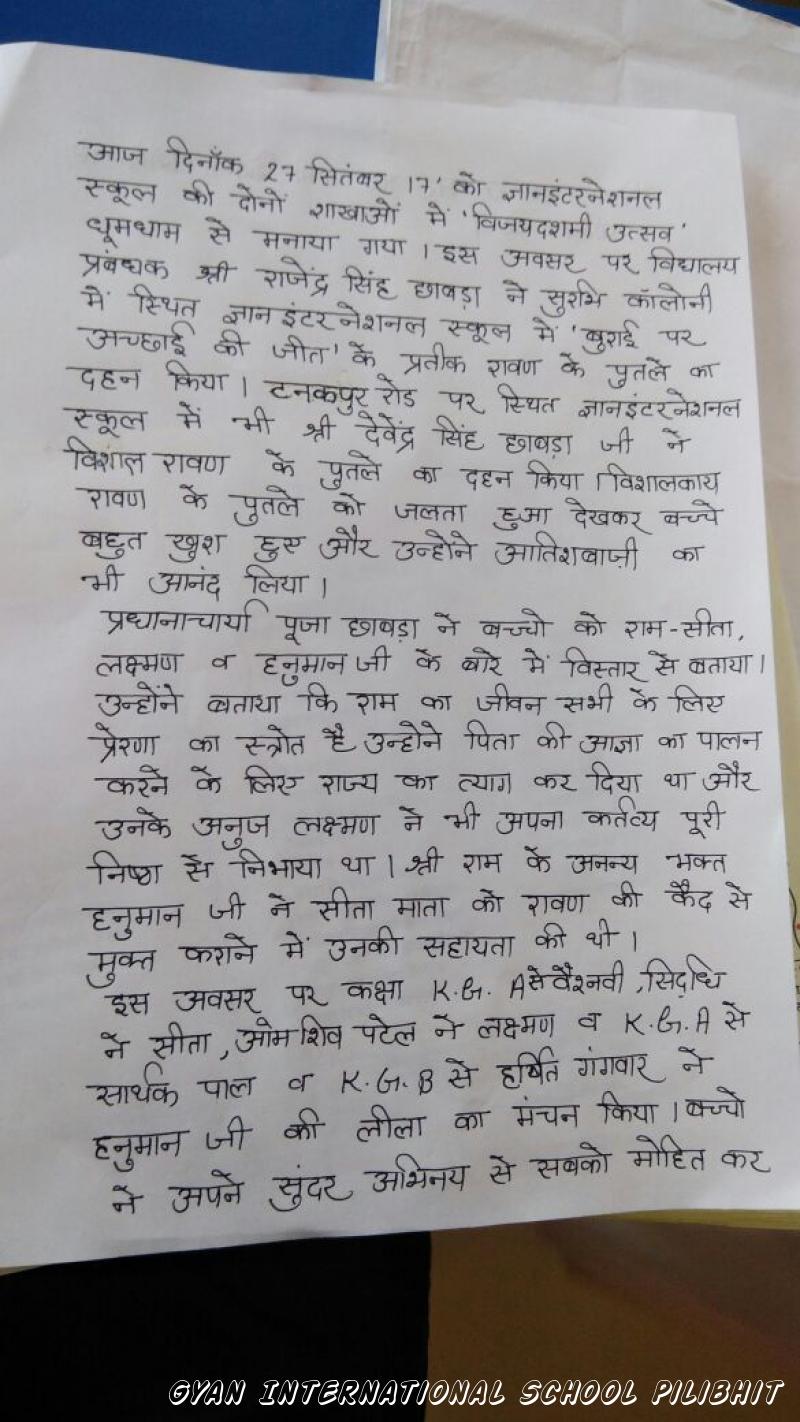 आज दिनाँक 27 सितंबर 17' को ज्ञानइंटरनेशनल
स्कूल की दोनों शाखाओं में 'विजयदशमी उत्सव'
धूमधाम से मनाया गया । इस अवसर पर विद्यालय
प्रबंधक श्री राजेंद्र सिंह छाबड़ा ने सुरभि कॉलोनी
में स्थित ज्ञानइंटरनेशनल स्कूल में 'बुराई पर
अच्छाई की जीत' के प्रतीक रावण के पुतले का
दहन किया । टनकपुर रोड पर स्थित ज्ञानइंटरनेशनल
स्कूल में भी श्री देवेंद्र सिंह छाबड़ा जी ने
विशाल रावण के पुतले का दहन किया । विशालकाय
रावण के पुतले को जलता हुआ देखकर बच्चे
बहुत खुश हुए और उन्होने आतिशबाज़ी का
भी आनंद लिया ।
प्रधानाचार्या पूजा छाबड़ा ने बच्चो को राम-सीता,
लक्ष्मण व हनुमान जी के बारे में विस्तार से बताया ।
उन्होंने बताया कि राम का जीवन सभी के लिए
प्रेरणा का स्त्रोत है उन्होने पिता की आज्ञा का पालन
करने के लिए राज्य का त्याग कर दिया था और
उनके अनुज लक्ष्मण ने भी अपना कर्तव्य पूरी
निष्ठा से निभाया था । श्री राम के अनन्य भक्त
हनुमान जी ने सीता माता को रावण की कैद से
मुक्त कराने में उनकी सहायता की थी ।
इस अवसर पर कक्षा K.G. A से वैश्नवी, सिद्धि
ने सीता, ओम शिव पटेल ने लक्ष्मण व K.G.A से
सार्थक पाल व K.G.B से हर्षित गंगवार ने
हनुमान जी की लीला का मंचन किया । बच्चो
ने अपने सुंदर अभिनय से सबको मोहित कर
GYAN INTERNATIONAL SCHOOL PILIBHIT